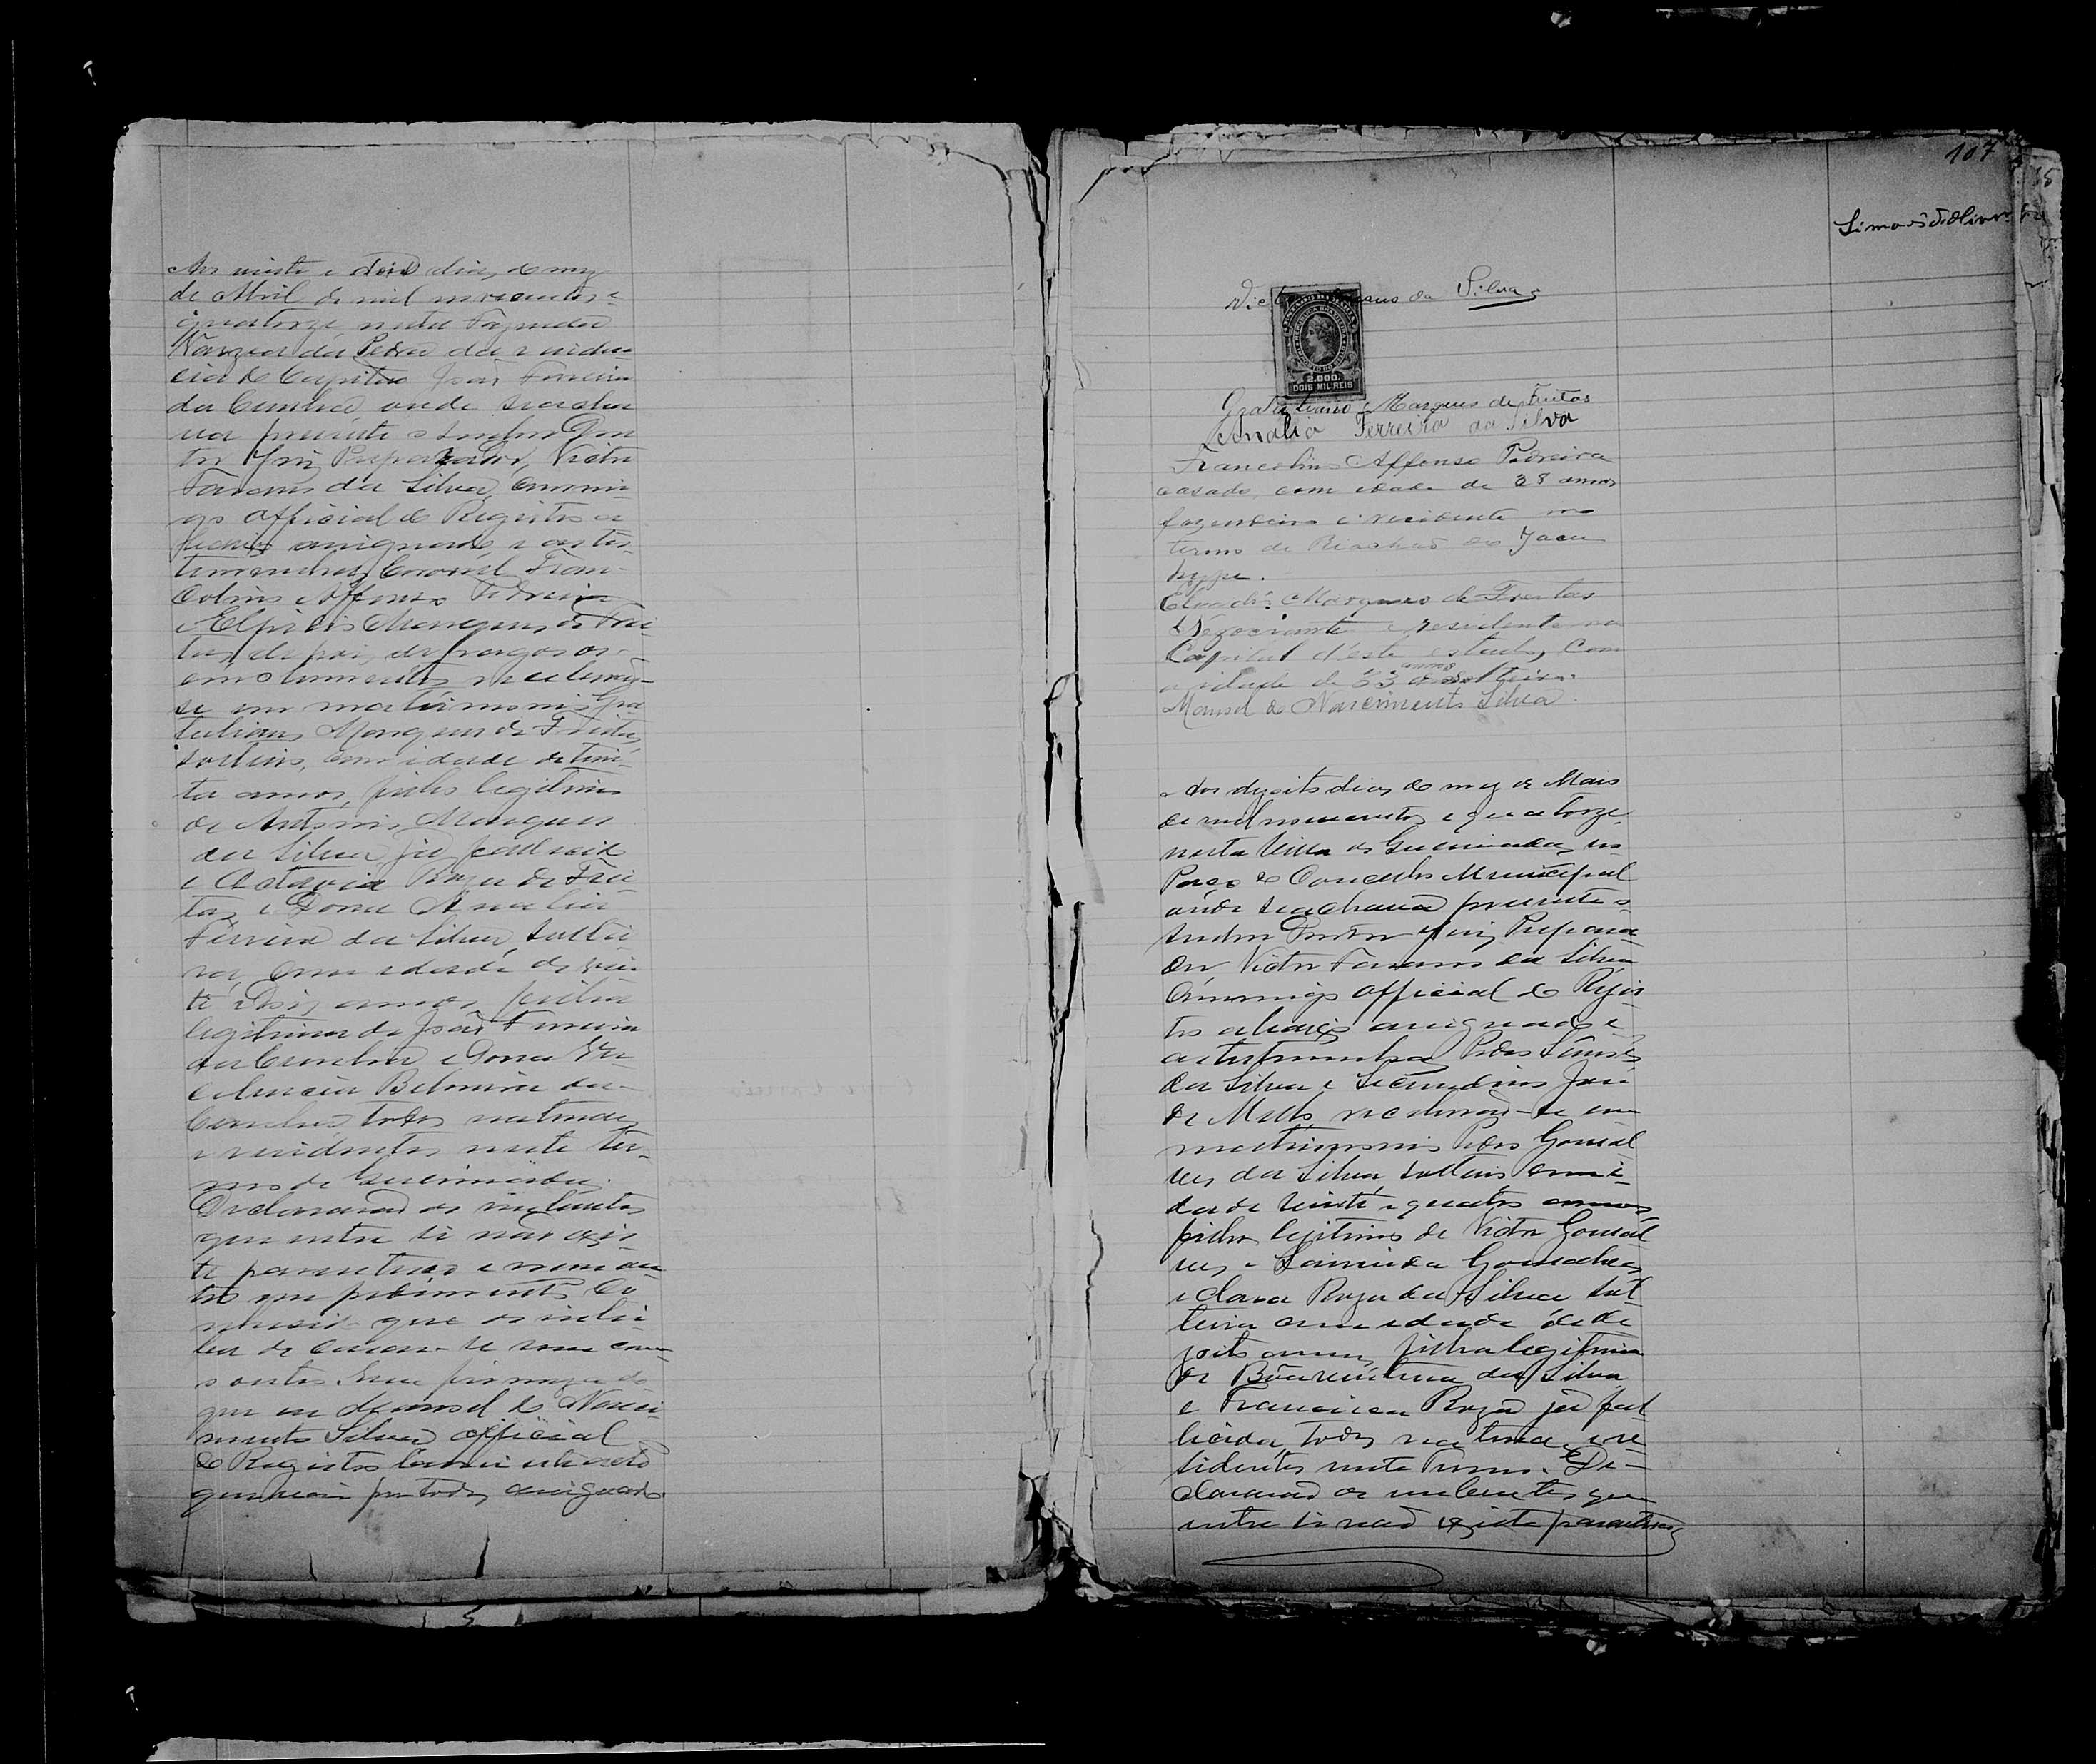 Aos vinte e dois dias do mez
de Abril de mil novecentos e
quatorze nesta Fazenda
Varzea da Pedra da residen-
cia do Capitão João Ferreira
da Cunha onde se acha-
va presente o Senhor Dou
tor Juiz Preparador, Victor
da Silva, commi-
go official do Registro a
baixo assignado, e as tes-
temunhas Coronel Fran-
colino Affonso Pedreira
e Elpidio Marques de Frei-
tas, depois de pagos os
emolumentos receberão-
se em matrimonio Gra
tuliano Marques de Freitas,
solteiro, com idade de trin-
ta annos, filho legitimo
de Antonio Marques
da Silva, já fallecido
e Octavia Roza de Frei-
tas, e Dona Analia
Ferreira da Silva, soltei-
ra, com edade de vin-
te e dois annos, filha
legitima de João Ferreira
da Cunha e Dona
Belmira da
Cunha todos naturaes
e residentes neste ter-
mo de Queimadas.
Declararão os nubentes
que entre si não exis-
te parentesco e nem ou-
tro impedimento
que os inhi-
ba de casar-se um com
o outro. Em firmeza do
que eu Manoel do Nasci-
mento Silva official
do Registro lavrei este acto
que vai por todos assignado
107
Simões de Oliveira
Victor da Silva
2.000.
DOIS MIL REIS
Gratuliano Marques de Freitas
Analia Ferreira da Silva
Francolino Affonso Pedreira
casado, com edade de 38 annos
fazendeiro e residente no
termo de Riachão do Jacu
hype.
Marques de Freitas
Negociante e residente na
Capital d'este estado, com
a idade de 33 annos solteiro.
Manoel do Nascimento Silva.
Aos dezoito dias do mez de Maio
de mil novecentos e quatorze,
nesta Villa de Queimadas, no
Paço do Conselho Municipal
onde se achava presente o
Senhor Doutor Juiz Prepara-
dor, Victor da Silva
commigo official do Regis-
tro abaixo assignado e
as testemunhas Pedro Simões
da Silva e Secundino José
de Mello, receberão-se em
matrimonio Pedro Gonsal
ves da Silva, solteiro, com i-
dade de vinte e quatro annos,
filho legitimo de Victor Gonsal
ves e Gonsalves
e Clara Roza da Silva sol-
teira com edade de de
zoito annos, filha legitima
de Bôaventura da Silva
e Francisca Roza já fal
licida, todos naturaes e re-
sidentes neste Termo. De-
clararão os nubentes que
entre si não existe parentesco